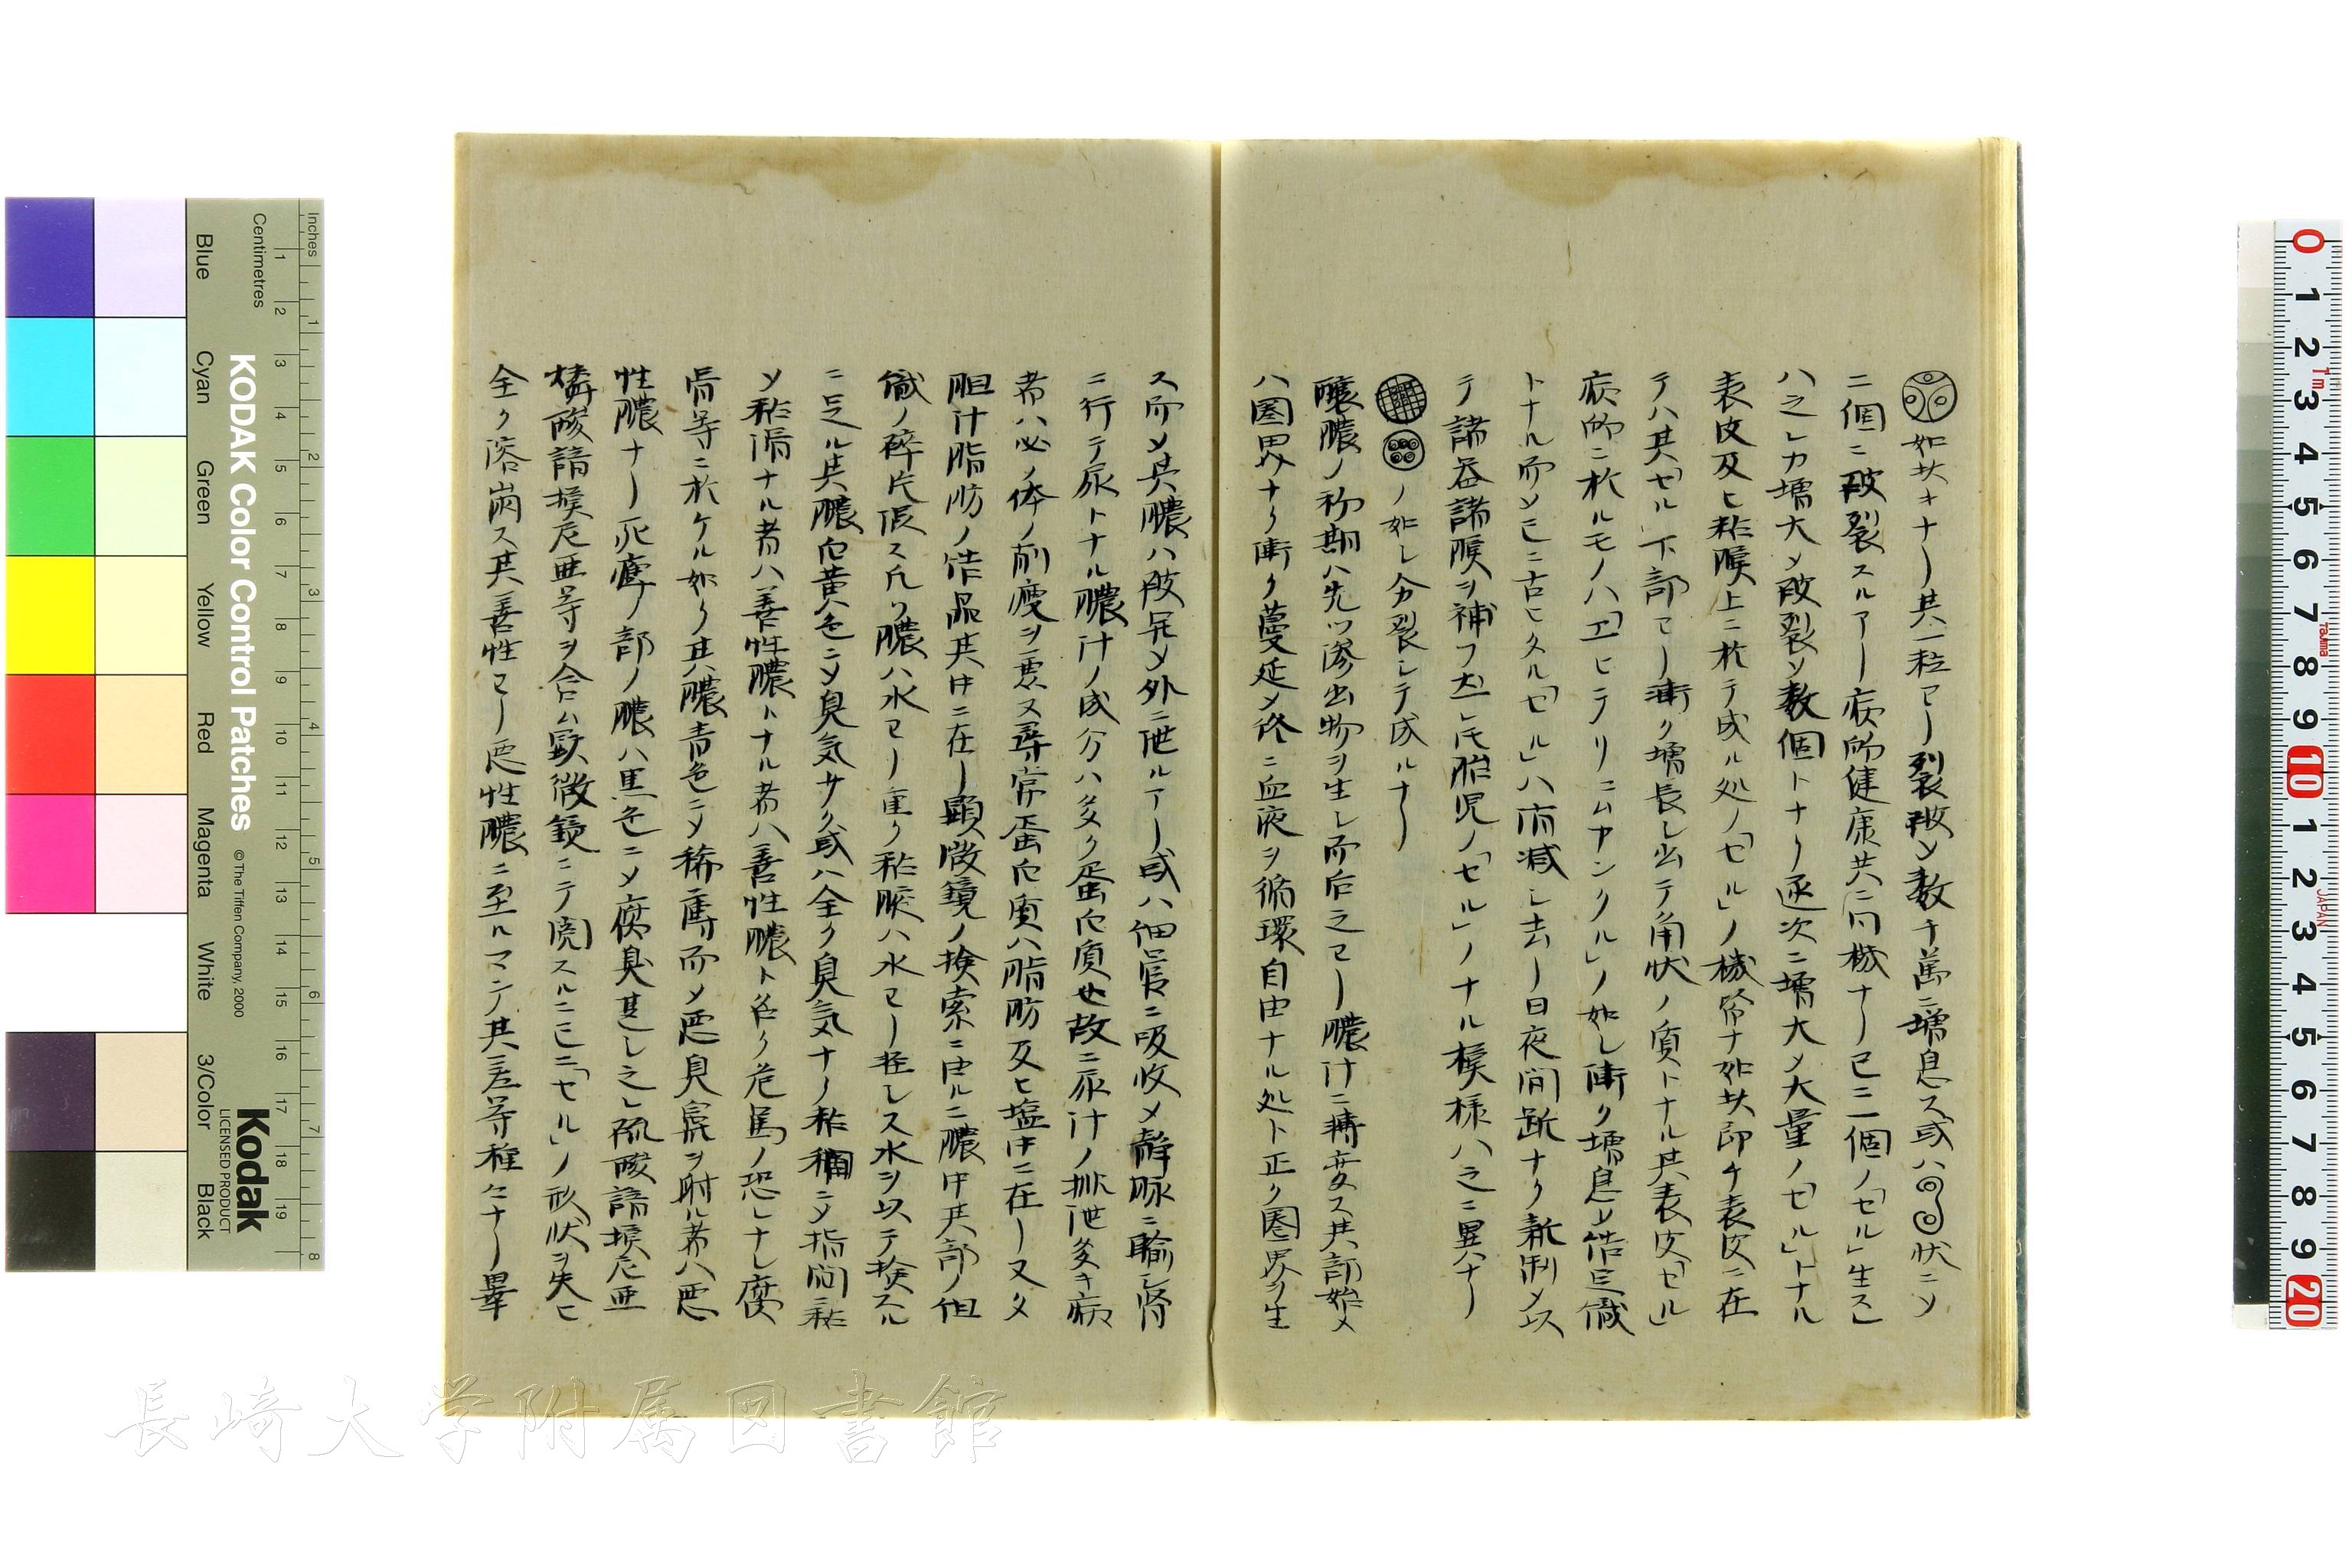 如此キナリ其一粒ヨリ裂破〆数千萬ニ増息ス或ハ 状ニ〆
二個ニ破裂スルアリ病的健康共ニ同機ナリ已ニ二個ノ「セル」生スレ
ハ之レカ増大〆破裂〆数個トナリ逐次ニ増大〆大量ノ「セル」トナル
表皮及ヒ粘膜上ニ於テ成ル処ノ「セル」ノ機 ナ如此即チ表皮ニ在
テハ其「セル」下部ヨリ漸ク増長シ出テ角状ノ質トナル其表皮「セル」
病的ニ於ルモノハ「エヒテリームヤンクル」ノ如シ漸ク増息〆結 織
トナル而〆已ニ古ヒタル「セル」ハ消減シ去リ日夜間 ナク新制〆以
テ諸器諸膜ヲ補フ 胎児ノ「セル」ノナル模様ハ之ニ異ナリ
ノ如シ分裂シテ成ルナリ
醸膿ノ初期ハ先ツ滲出物ヲ生シ而后之ヨリ膿汁ニ轉変ス其部始メ
ハ圏界ナク漸ク蔓延〆終ニ血液ヲ循環自由ナル処ト正ク圏界ヲ生
ス而〆其膿ハ破開〆外ニ泄ルアリ或ハ細管ニ吸收〆静脈ニ輸シ腎
ニ行テ尿トナル膿汁ノ成分ハ多ク蛋白質也故ニ尿汁ノ排泄多キ病
者ハ必ノ体ノ削痩ヲ 又尋常蛋白質ハ脂肪及ヒ塩中ニ在リ又タ
胆汁脂肪ノ結晶其中ニ在リ顕微鏡ノ捜索ニ由ルニ膿中其部ノ組
織ノ碎片 ス凡ソ膿ハ水ヨリ重ク粘膜ハ水ヨリ軽シス水ヲ以テ検スル
ニ足ル其膿白黄色ニ〆臭気サク或ハ全ク臭気ナク粘稠ニ〆指間ニ粘
〆粘滑ナル者ハ善性膿トナル者ハ善性膿ト名ク危篤ノ恐レナシ腐
骨等ニ於ケル如ク其膿青色ニ〆稀薄而〆悪臭鼻ヲ射ル者ハ悪
性膿ナリ死 ノ部ノ膿ハ黒色ニ〆腐臭甚シ之レ硫酸諳摸尼亜
燐酸諳摸尼亜等ヲ含ム顕微鏡ニテ閲スルニ已ニ「セル」ノ形状ヲ失ヒ
全ク溶崩ス其善性ヨリ悪性膿ニ至ルマテノ其差等種々ナリ畢
KODAK Color Control Patches
© The Tiffen Company, 2000
Kodak
LICENSED PRODUCT
Inches
Centimetres
Blue
Cyan
Green
Yellow
Red
Magenta
White
3/Color
Black
長崎大学附属図書館